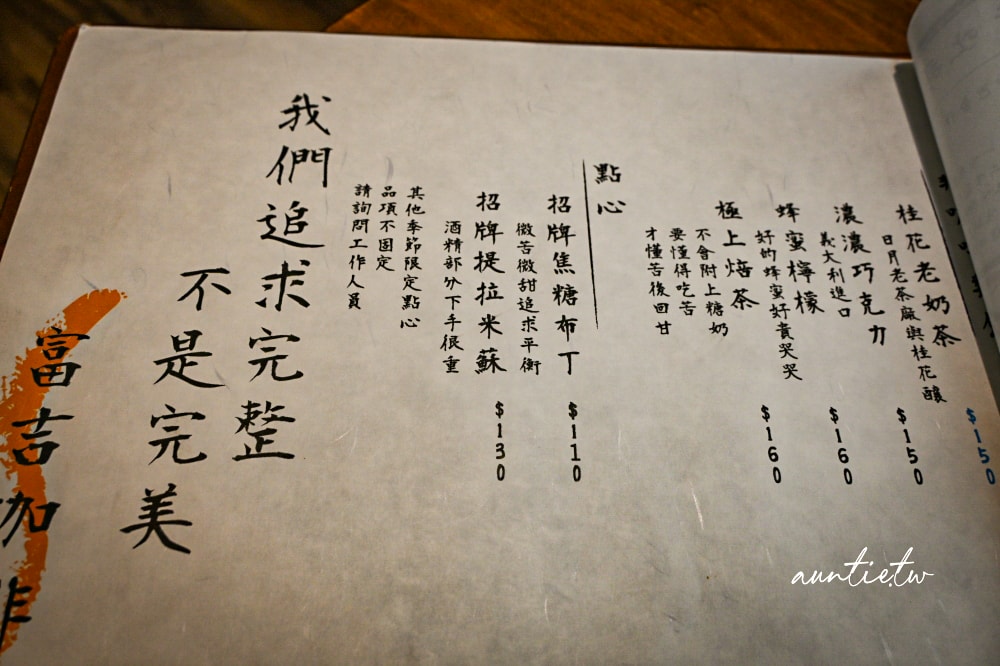 桂花老奶茶 $150
日月老茶廠與桂花釀
濃濃巧克力 $150
義大利進口
蜂蜜檸檬 $160
好的蜂蜜好貴哭哭
極上焙茶 $160
不會附上糖奶
要懂得吃苦
才懂苦後回甘
點心
招牌焦糖布丁 $110
微苦微甜追求平衡
招牌提拉米蘇 $130
酒精部分下手很重
其他季節限定點心
品項不固定
請詢問工作人員
我們追求完整
不是完美
富吉咖啡
auntie.tw